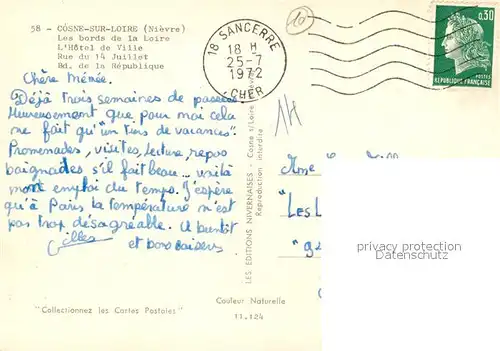 58 - COSNE-SUR-LOIRE (Nièvre)
Les bords de la Loire
L'Hôtel de Ville
Rue du 14 Juillet
Bd. de la République
18 SANCERRE
18 H
25-7
1972
CHER
0,30
POSTES
REPUBLIQUE FRANÇAISE
10
14
Chère Mémée.
Déjà trois semaines de passées.
Heureusement que pour moi cela
ne fait qu'"un tiers de vacances".
Promenades, visites, lecture, repos
baignades s'il fait beau... voilà
mon emploi du temps. J'espère
qu'à Paris la température n'est
pas trop désagréable. A bientôt
Gilles et bons baisers
LES EDITIONS NIVERNAISES - Cosne s/Loire
Reproduction interdite
Mme
"Les L
"9
privacy protection
Datenschutz
"Collectionnez les Cartes Postales"
Couleur Naturelle
11.124